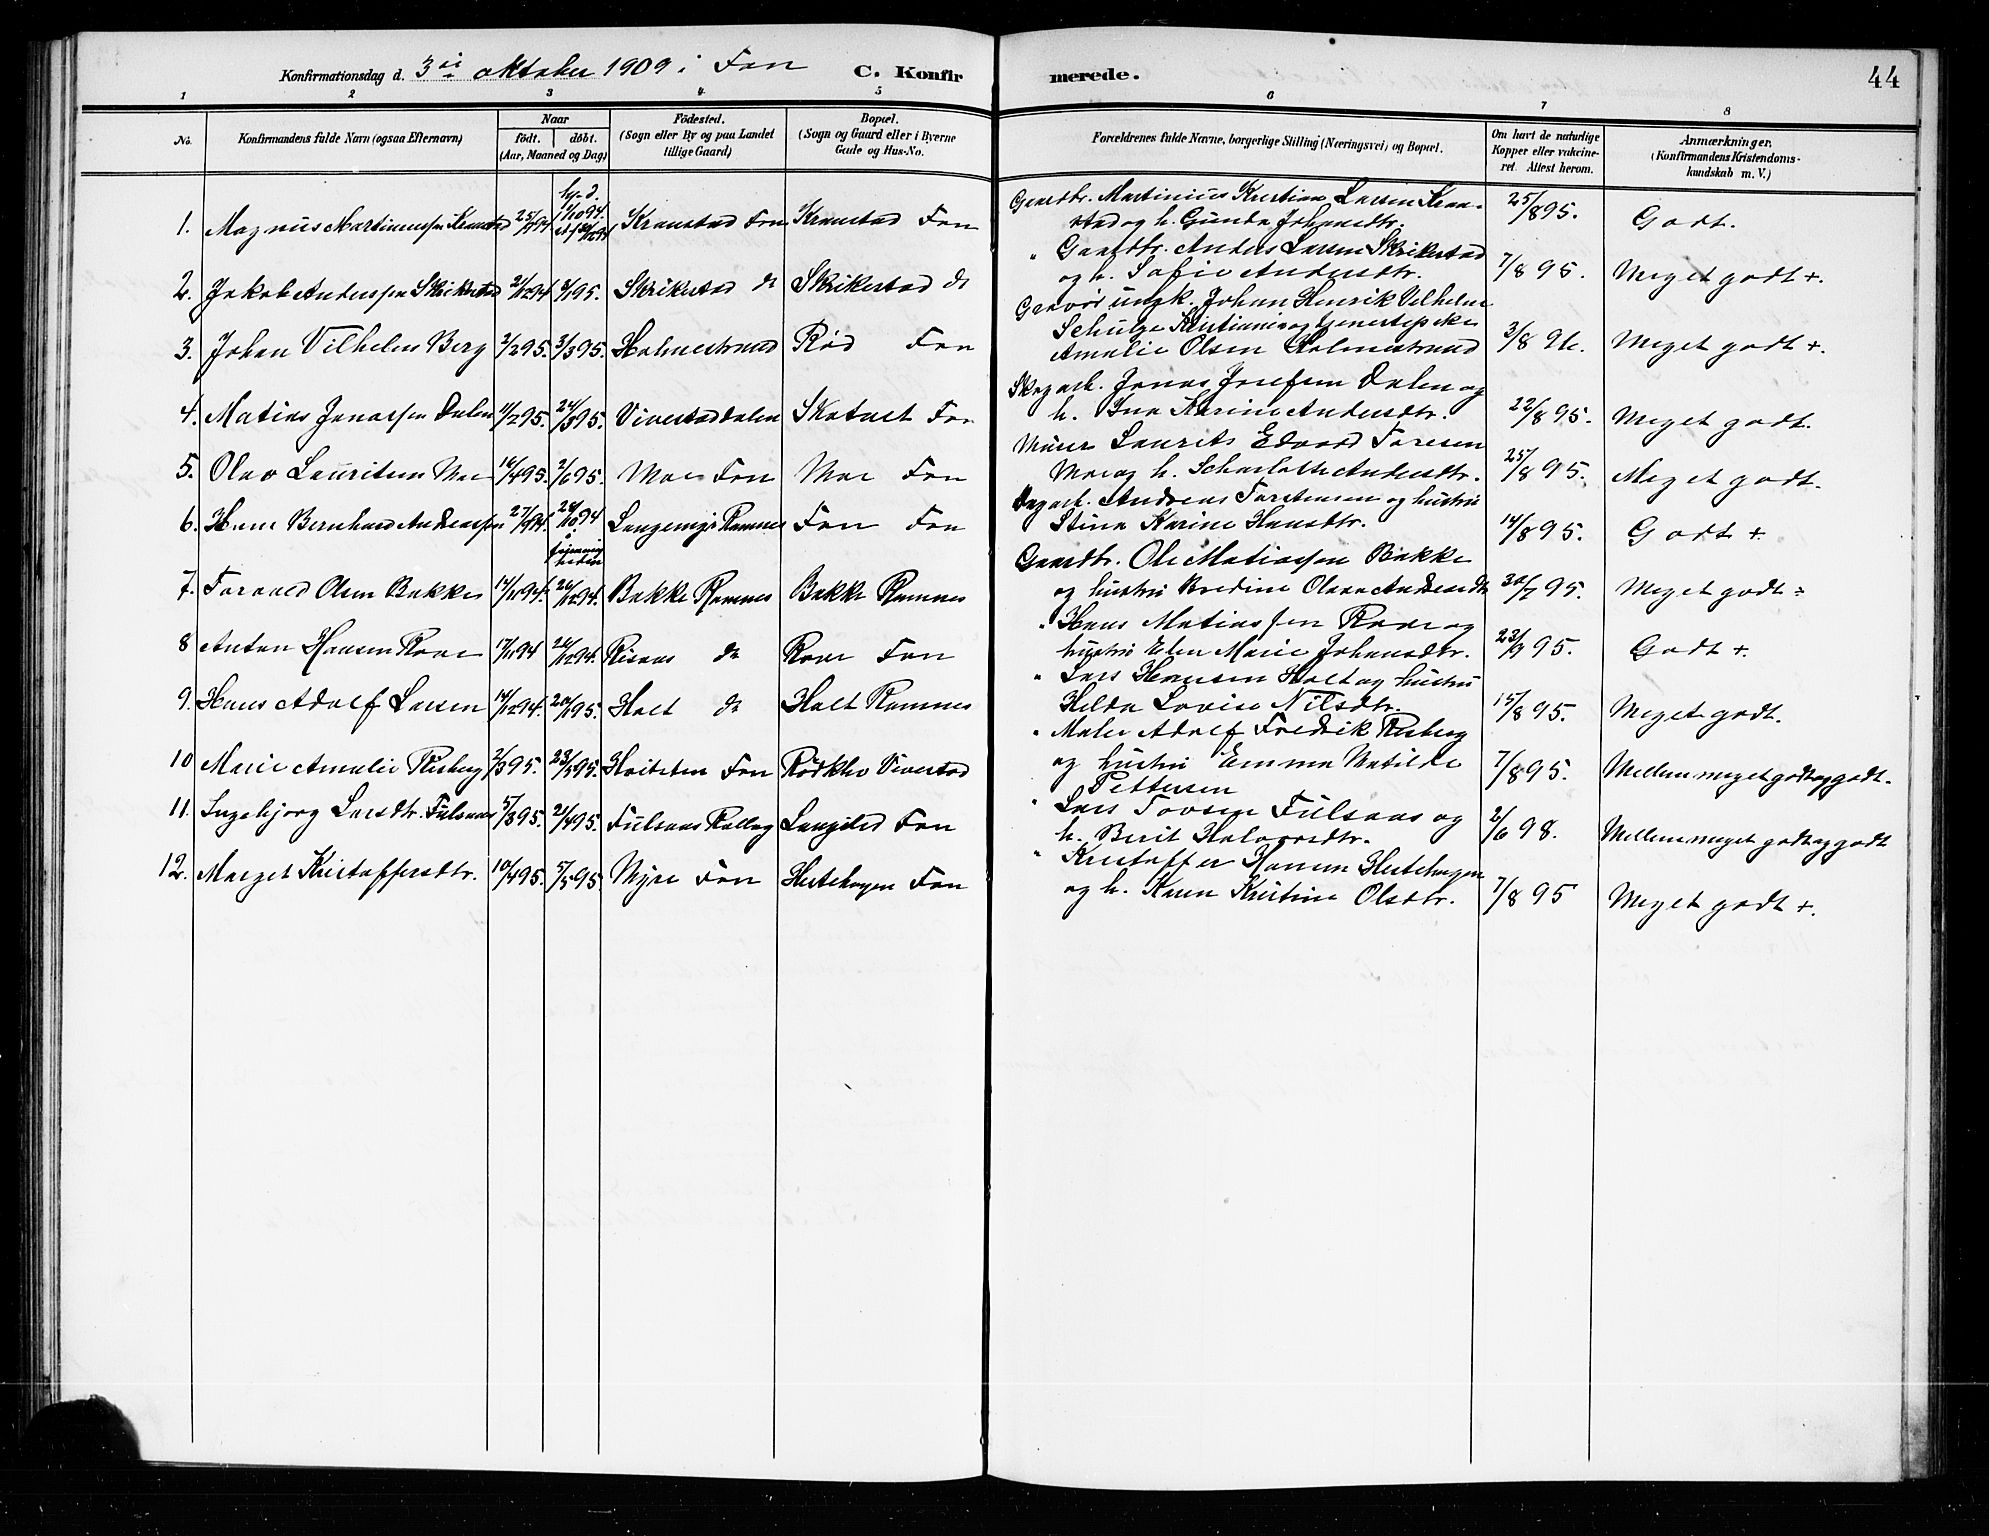 Konfirmationsdag d. 3die oktober 1909 i Fon C. Konfir merede. 44
1 2 3 4 5 6 7 8
No. Konfirmandens fulde Navn (ogsaa Efternavn) Naar födt. döbt. (Aar, Maaned og Dag) Födested. (Sogn eller By og paa Landet tillige Gaard) Bopæl. (Sogn og Gaard eller i Byerne Gade og Hus-No. Forældrenes fulde Navne, borgerlige Stilling (Næringsvei) og Bopæl. Om havt de naturlige Kopper eller vakcineret. Attest herom. Anmærkninger. (Konfirmandens Kristendomskundskab m. V.)
1. Magnus Martinussen Kranstad Kranstad Fon Kranstad Fon Gaardbr. Martinius Kristian Larsen Kranstad og h. Gunda Johansdtr. 25/8 95. Godt.
2. Jakob Anderssen Skrikestad 2/1 95. Skrikestad do Skrikestad do " Gaardbr. Anders Larsen Skrikestad og h. Sofie Andersdtr. 7/8 95. Meget godt +.
3. Johan Vilhelm Berg 2/2 95. 3/3 95. Holmestrand Rød Fon Gravør ungk. Johan Henrik Vilhelm Schulze Kristiania og tjenestepike Amalie Olsen Holmestrand 3/8 96. Meget godt +.
4. Matias Jonassen Dalen 11/2 95. 24/3 95. Vivestaddalen Skatvet Fon Skogarb. Jonas Josefsen Dalen og h. Ina Karine Andersdtr. 22/8 95. Meget godt.
5. Olav Lauritsen Moe 16/4 95. 2/6 95. Moe Fon Moe Fon Murer Laurits Edvard Toresen Moe og h. Scharlotte Andersdtr. 25/8 95. Meget godt.
6. Hans Bernhard Andreassen 27/9 94. Langemyr Ramnes Fon Fon Dagarb. Andreas Torstensen og hustru Stina Karine Hansdtr. 14/8 95. Godt +.
7. Torvald Olsen Bakke 14/11 94. 26/12 94. Bakke Ramnes Bakke Ramnes Gaardbr. Ole Matiassen Bakke og hustru Bredine Olava Andreasdtr 30/7 95. Meget godt
8 Anton Hansen Rove 17/11 94 26/12 94. Risaas do Rove Fon " Hans Matiassen Rove og hustru Elen Marie Johansdtr. 23/9 95. Godt +.
9. Hans Adolf Larsen 14/12 94. 20/1 95. Holt do Holt Ramnes " Lars Hansen Holt og hustru Helda Lovise Nilsdtr. 15/8 95. Meget godt.
10 Marie Amalie Risberg 2/3 95. 23/5 95. Hvitsten Fon Rødklev Vivestad " Maler Adolf Fredrik Risberg og hustru Emma Matilde Pettersen 7/8 95. Mellem meget godt og godt.
11. Ingebjørg Larsdtr. Fulsaas 5/3 95. 21/4 95. Fulsaas Rollag Langelid Fon " Lars Tovsen Fulsaas og h. Berit Halvorsdtr. 2/6 98. Mellem meget godt og godt
12. Marget Kristoffersdtr. 10/4 95. 5/5 95 Myre Fon Hestehagen Fon " Kristoffer Hansen Hestehagen og h. Karen Kristine Olsdtr. 7/8 95 Meget godt +.